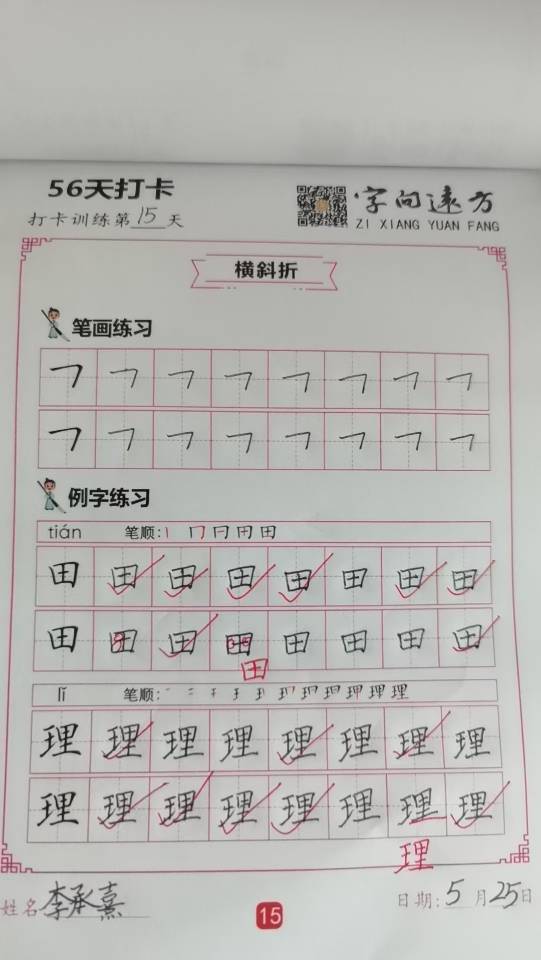 56天打卡
字向远方
打卡训练第15天
ZI XIANG YUAN FANG
横斜折
笔画练习
例字练习
tián 笔顺: 丨 冂 日 田 田
田 田 田 田 田 田 田 田
田 田 田 田 田 田 田 田
田
lǐ 笔顺:
理 理 理 理 理 理 理 理
理 理 理 理 理 理 理 理
理
姓名 李承熹
15
日期: 5 月 25 日